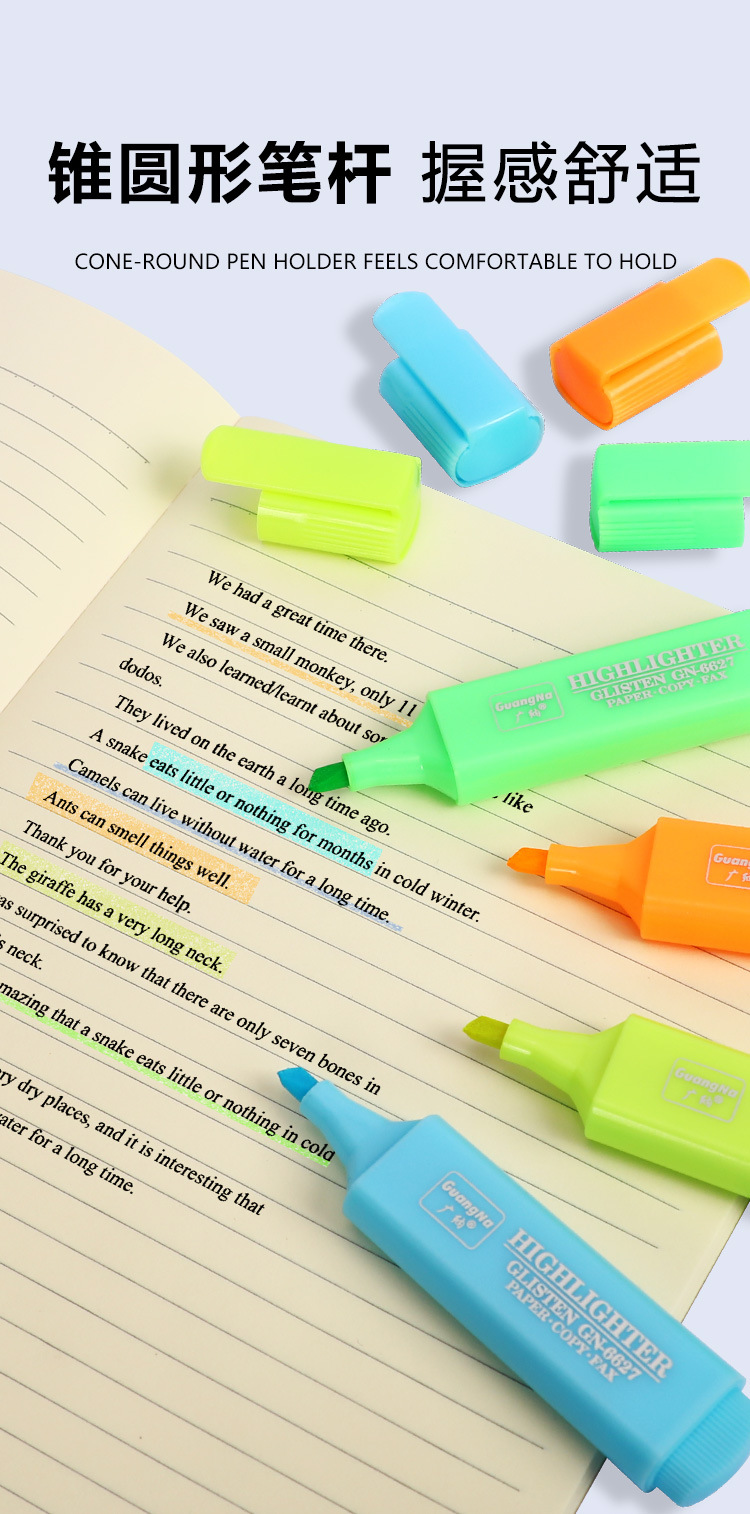 锥圆形笔杆 握感舒适
CONE-ROUND PEN HOLDER FEELS COMFORTABLE TO HOLD
We had a great time there.
We saw a small monkey, only 11
We also learned/learnt about
dodos.
They lived on the earth a long time ago.
like
A snake eats little or nothing for months in cold winter.
Camels can live without water for a long time.
Ants can smell things well.
Thank you for your help.
The giraffe has a very long neck.
as surprised to know that there are only seven bones in
s neck.
mazing that a snake eats little or nothing in cold
ry dry places, and it is interesting that
ater for a long time.
GuangNa
广纳®
HIGHLIGHTER
GLISTEN GN-6627
PAPER·COPY·FAX
Guang
广纳
GuangNa
广纳®
GuangNa
广纳®
HIGHLIGHTER
GLISTEN GN-6627
PAPER·COPY·FAX